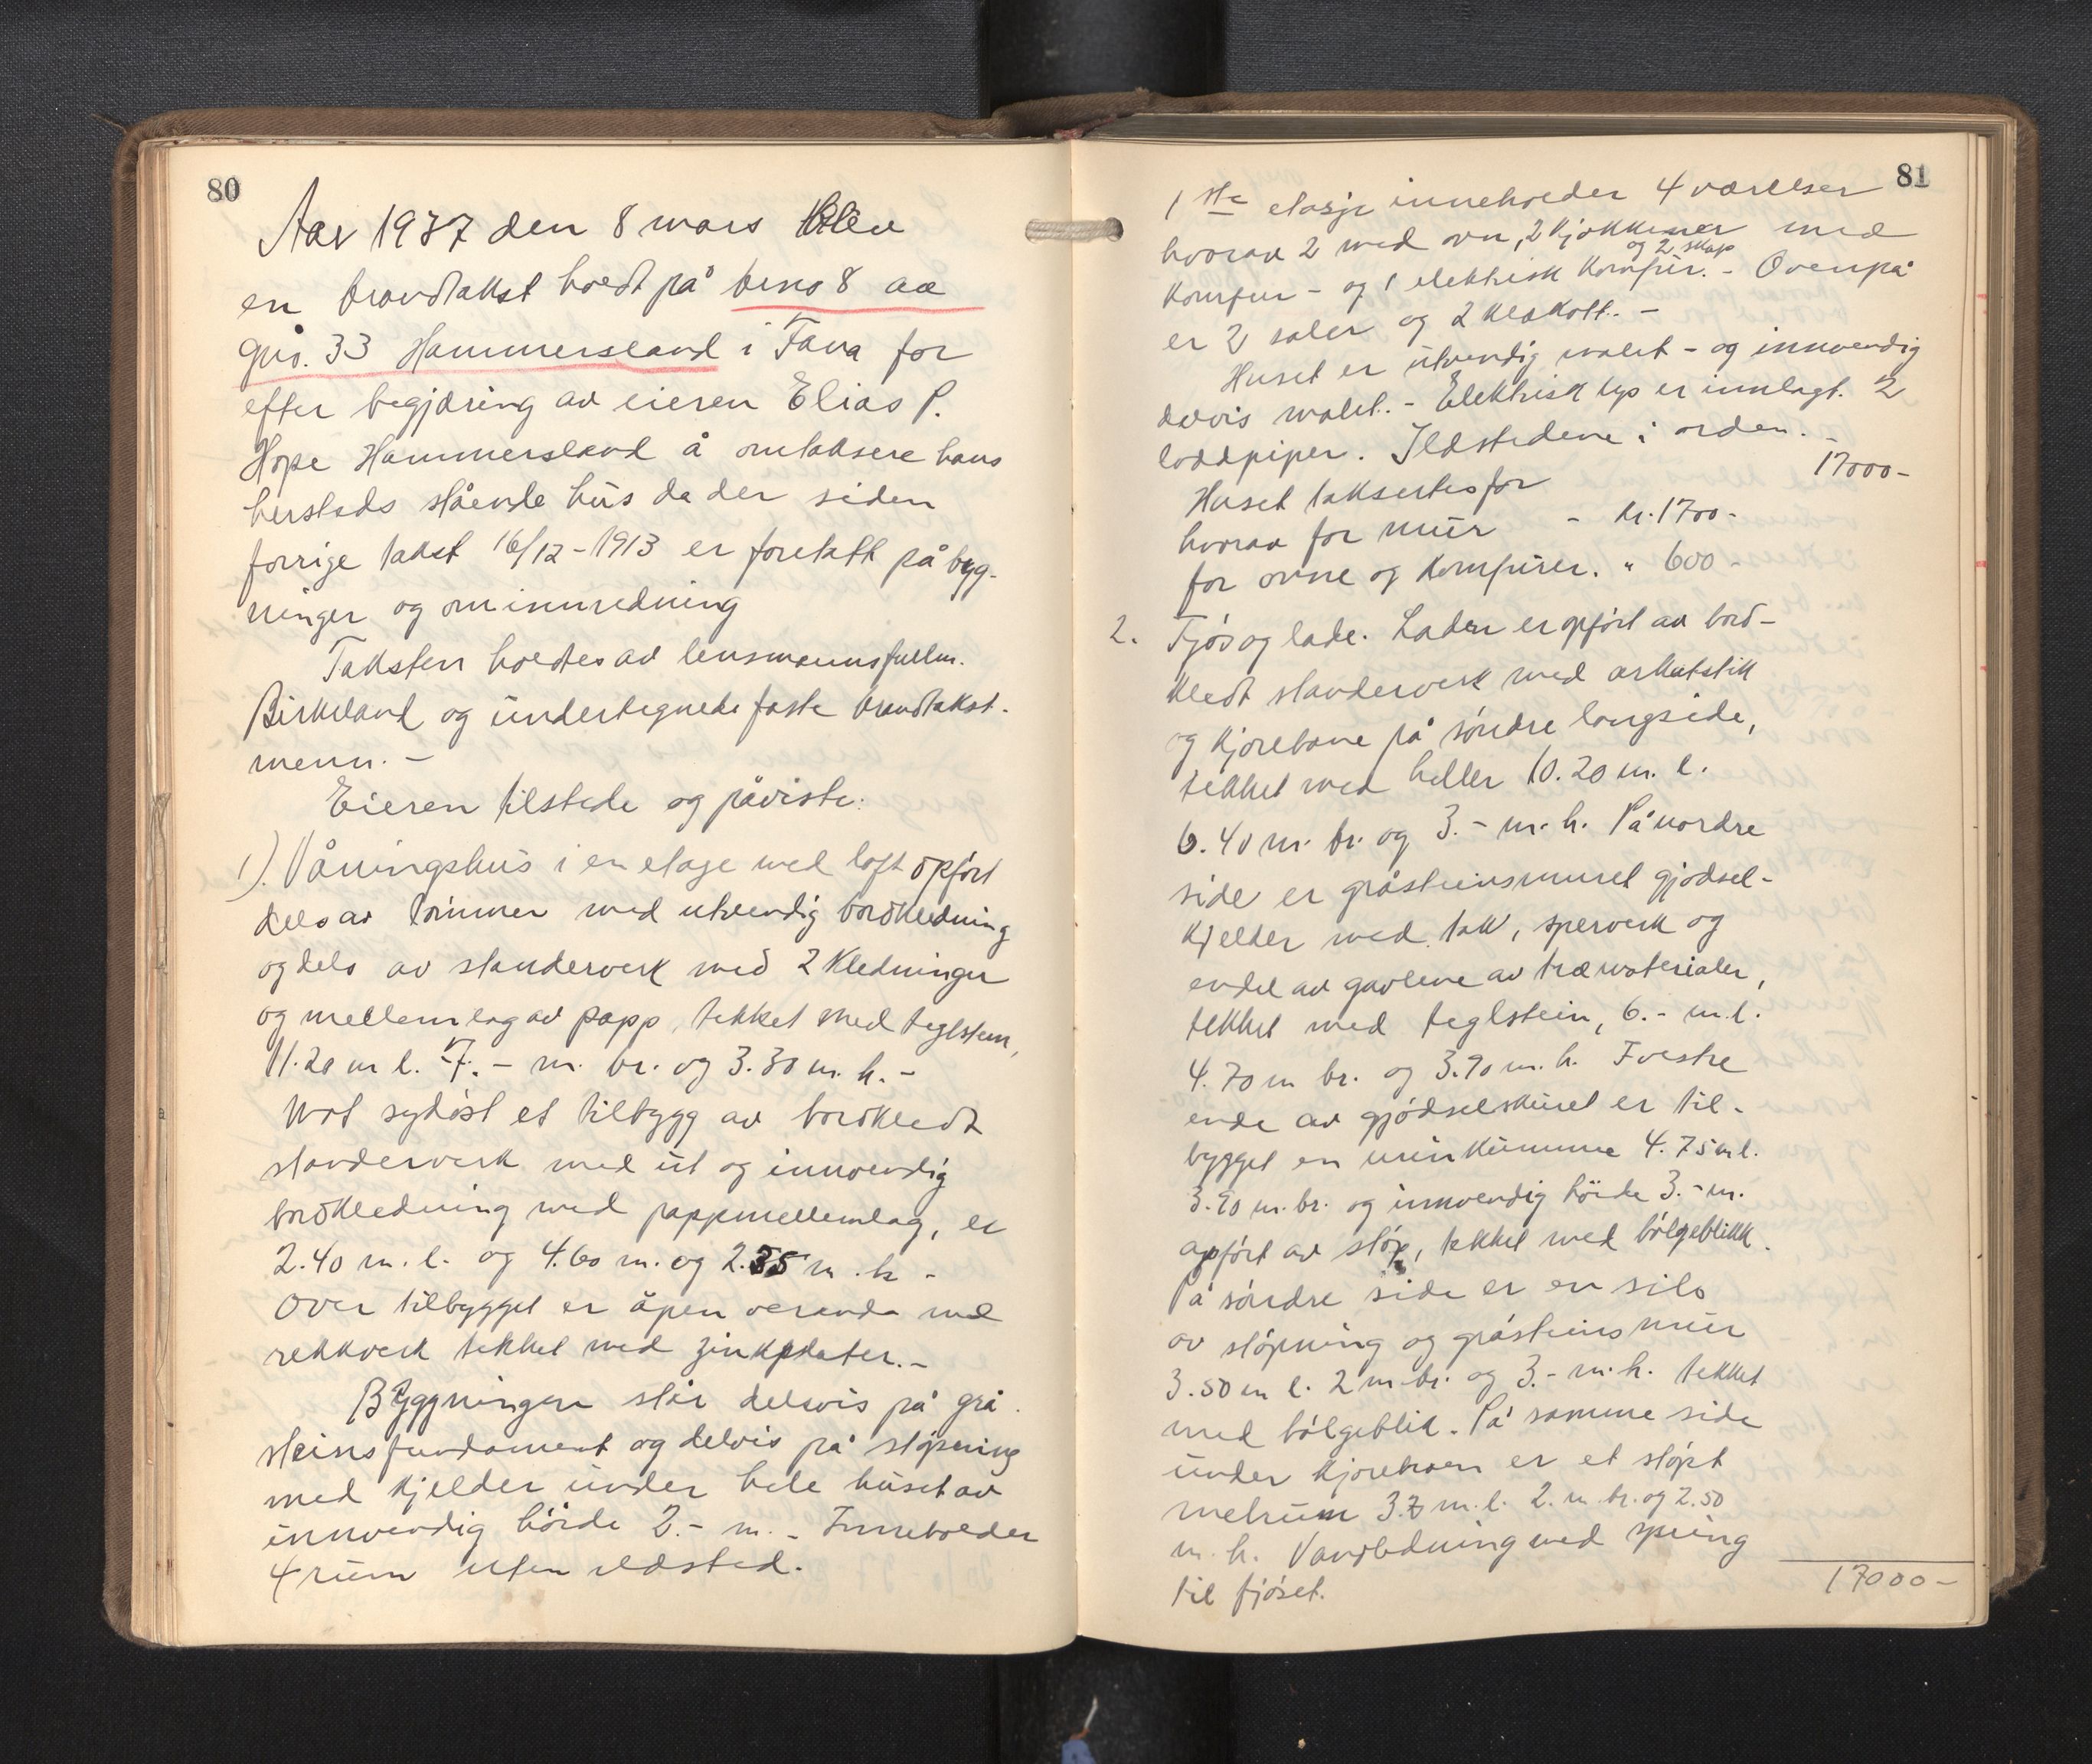 80
Aar 1937 den 8 mars blev
en brandtakst holdt på brno 8 av
gno. 33 Hammersland i Fana for
efter begjæring av eieren Elias P.
Hope Hammersland å omtaksere hans
hersteds stående hus da der siden
forrige takst 16/12-1913 er foretatt på byg-
ninger og ominnredning
Taksten holdtes av lensmannsfullm.
Birkeland og undertegnede faste brandtakst-
menn. -
Eieren tilstede og påviste:
1). Våningshus i en etage med loft opført
dels av tømmer med utvendig bordkledning
og dels av standerverk med 2 kledninger
og mellemlag av papp, tekket med teglsten,
11.20 m l. 7.- m. br. og 3.30 m. h. -
Mot sydøst et tilbygg av bordkledt
standerverk med ut og innvendig
bordkledning med pappmellemlag, er
2.40 m. l. og 4.60 m. og 2.35 m. h -
Over tilbygget er åpen veranda med
rekkverk tekket med zinkplater. -
Byggningen står delvis på grå
steinsfundament og delvis på støpning
med kjelder under hele huset av
innvendig høide 2.- m. - Inneholder
4 rum uten ildsted.
81
1ste etasje inneholder 4 værelser
hvorav 2 med ovn, 2 kjøkkener med
og 2 skap
komfur - og 1 elektrisk komfur. - Ovenpå
er 2 saler og 2 kleskott. -
Huset er utvendig malt - og innvendig
delvis malet. - Elektrisk lys er innlagt. 2
loddpiper. Ildstedene i orden. -
Huset taksertes for 17000-
hvorav for mur - kr. 1700-
for ovne og komfurer. " 600-
2. Fjøs og lade. Laden er opført av bord-
kledt standerverk med arkutstikk
og kjørebane på søndre langside,
tekket med heller 10.20 m. l.
6.40 m. br. og 3.- m. h. På nordre
side er gråsteinsmuret gjødsel-
kjelder med tak, sperverk og
endel av gavlene av træmaterialer,
tekket med teglstein, 6.- m. l.
4.70 m br. og 3.70 m. h. I vestre
ende av gjødselskuret er til-
bygget en urinkumme 4.75 m l.
3.90 m. br. og innvendig høide 3.- m.
opført av støp, tekket med bølgeblikk.
På søndre side er en silo
av støpning og gråsteinsmur
3.50 m l. 2 m br. og 3.- m. h. tekket
med bølgeblik. På samme side
under kjørebroen er et støpt
melrum 3.7 m. l. 2. m. br. og 2.50
m. h. Vandledning med spring
til fjøset.
17000-